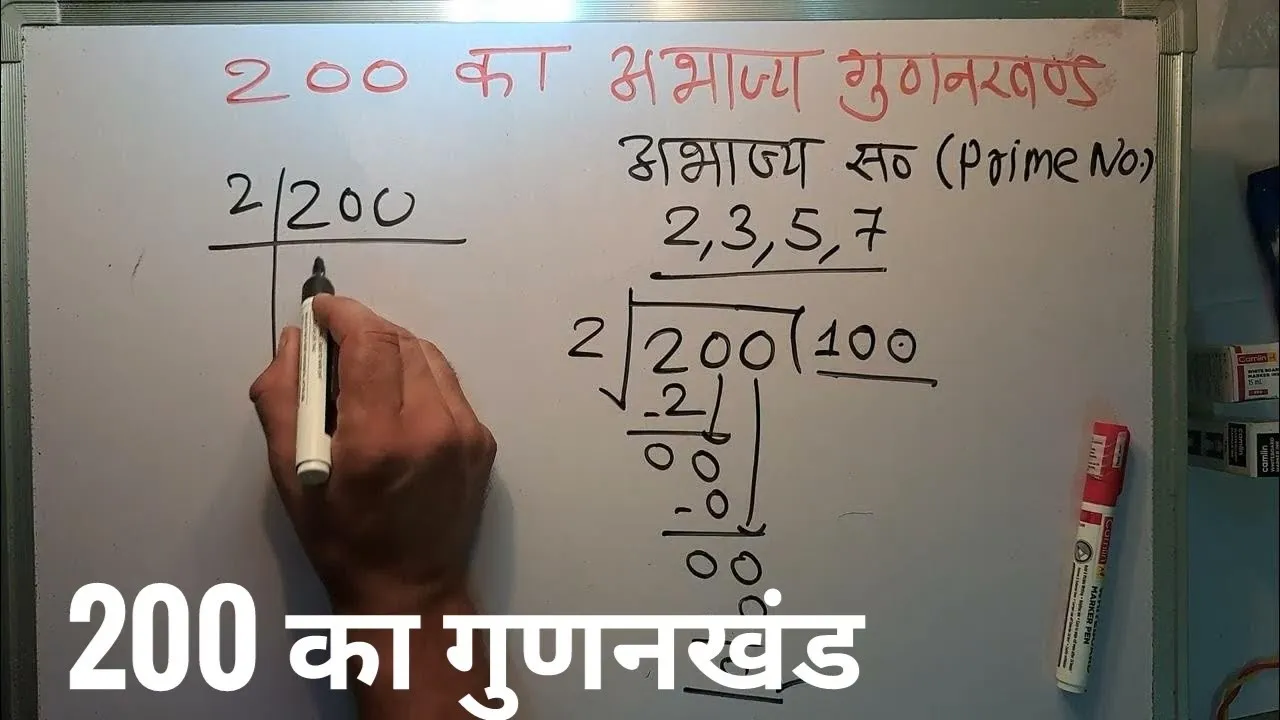 200 का अभाज्य गुणनखण्ड
अभाज्य स० (Prime No.)
2,3,5,7
2 200
2 200 (100
-2
00
-0
00
200 का गुणनखंड
camlin
WHITE BOARD
MARKER INK
15 ml
camlin
MARKER PEN